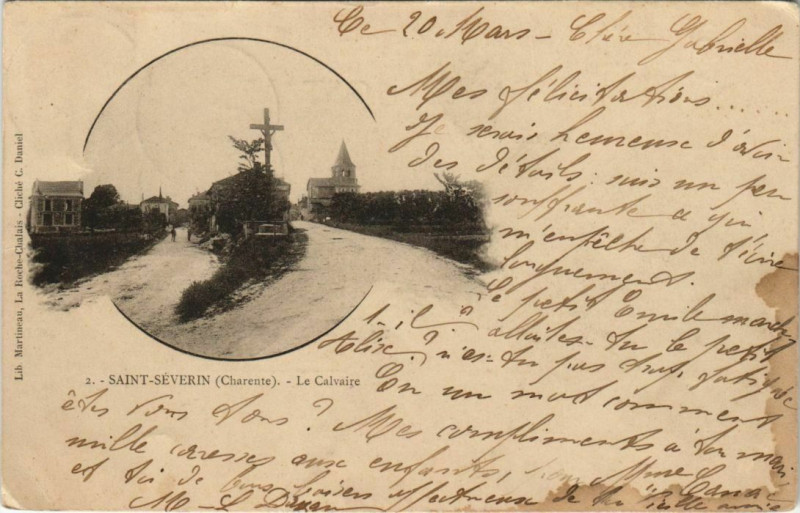 Ce 20 Mars - Chère Gabrielle
Mes félicitations......
Je serais heureuse d'avoir
des détails; suis un peu
souffrante ce qui
m'empêche de t'écrire
longuement.
Le petit Emile marche
t-il? allaites-tu le petit
Alix? n'es-tu pas trop fatiguée
En un mot comment
êtes vous tous? Mes compliments à ton mari
mille caresses aux enfants, Mme
et toi de bons baisers affectueux de ta vieille amie
M-L
2. - SAINT-SÉVERIN (Charente). - Le Calvaire
Lib. Martineau, La Roche-Chalais - Cliché C. Daniel